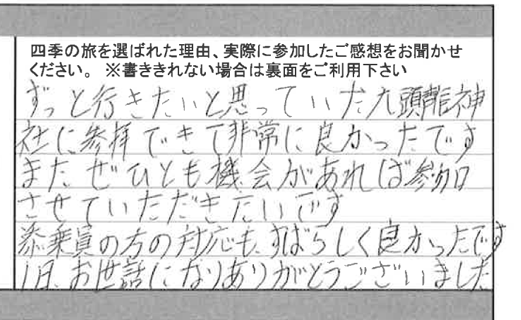 四季の旅を選ばれた理由、実際に参加したご感想をお聞かせ
ください。 ※書ききれない場合は裏面をご利用下さい
ずっと行きたいと思っていた九頭龍神
社に参拝できて非常に良かったです
またぜひとも機会があれば参加
させていただきたいです
添乗員の方の対応も、すばらしく良かったです
1日、お世話になりありがとうございました